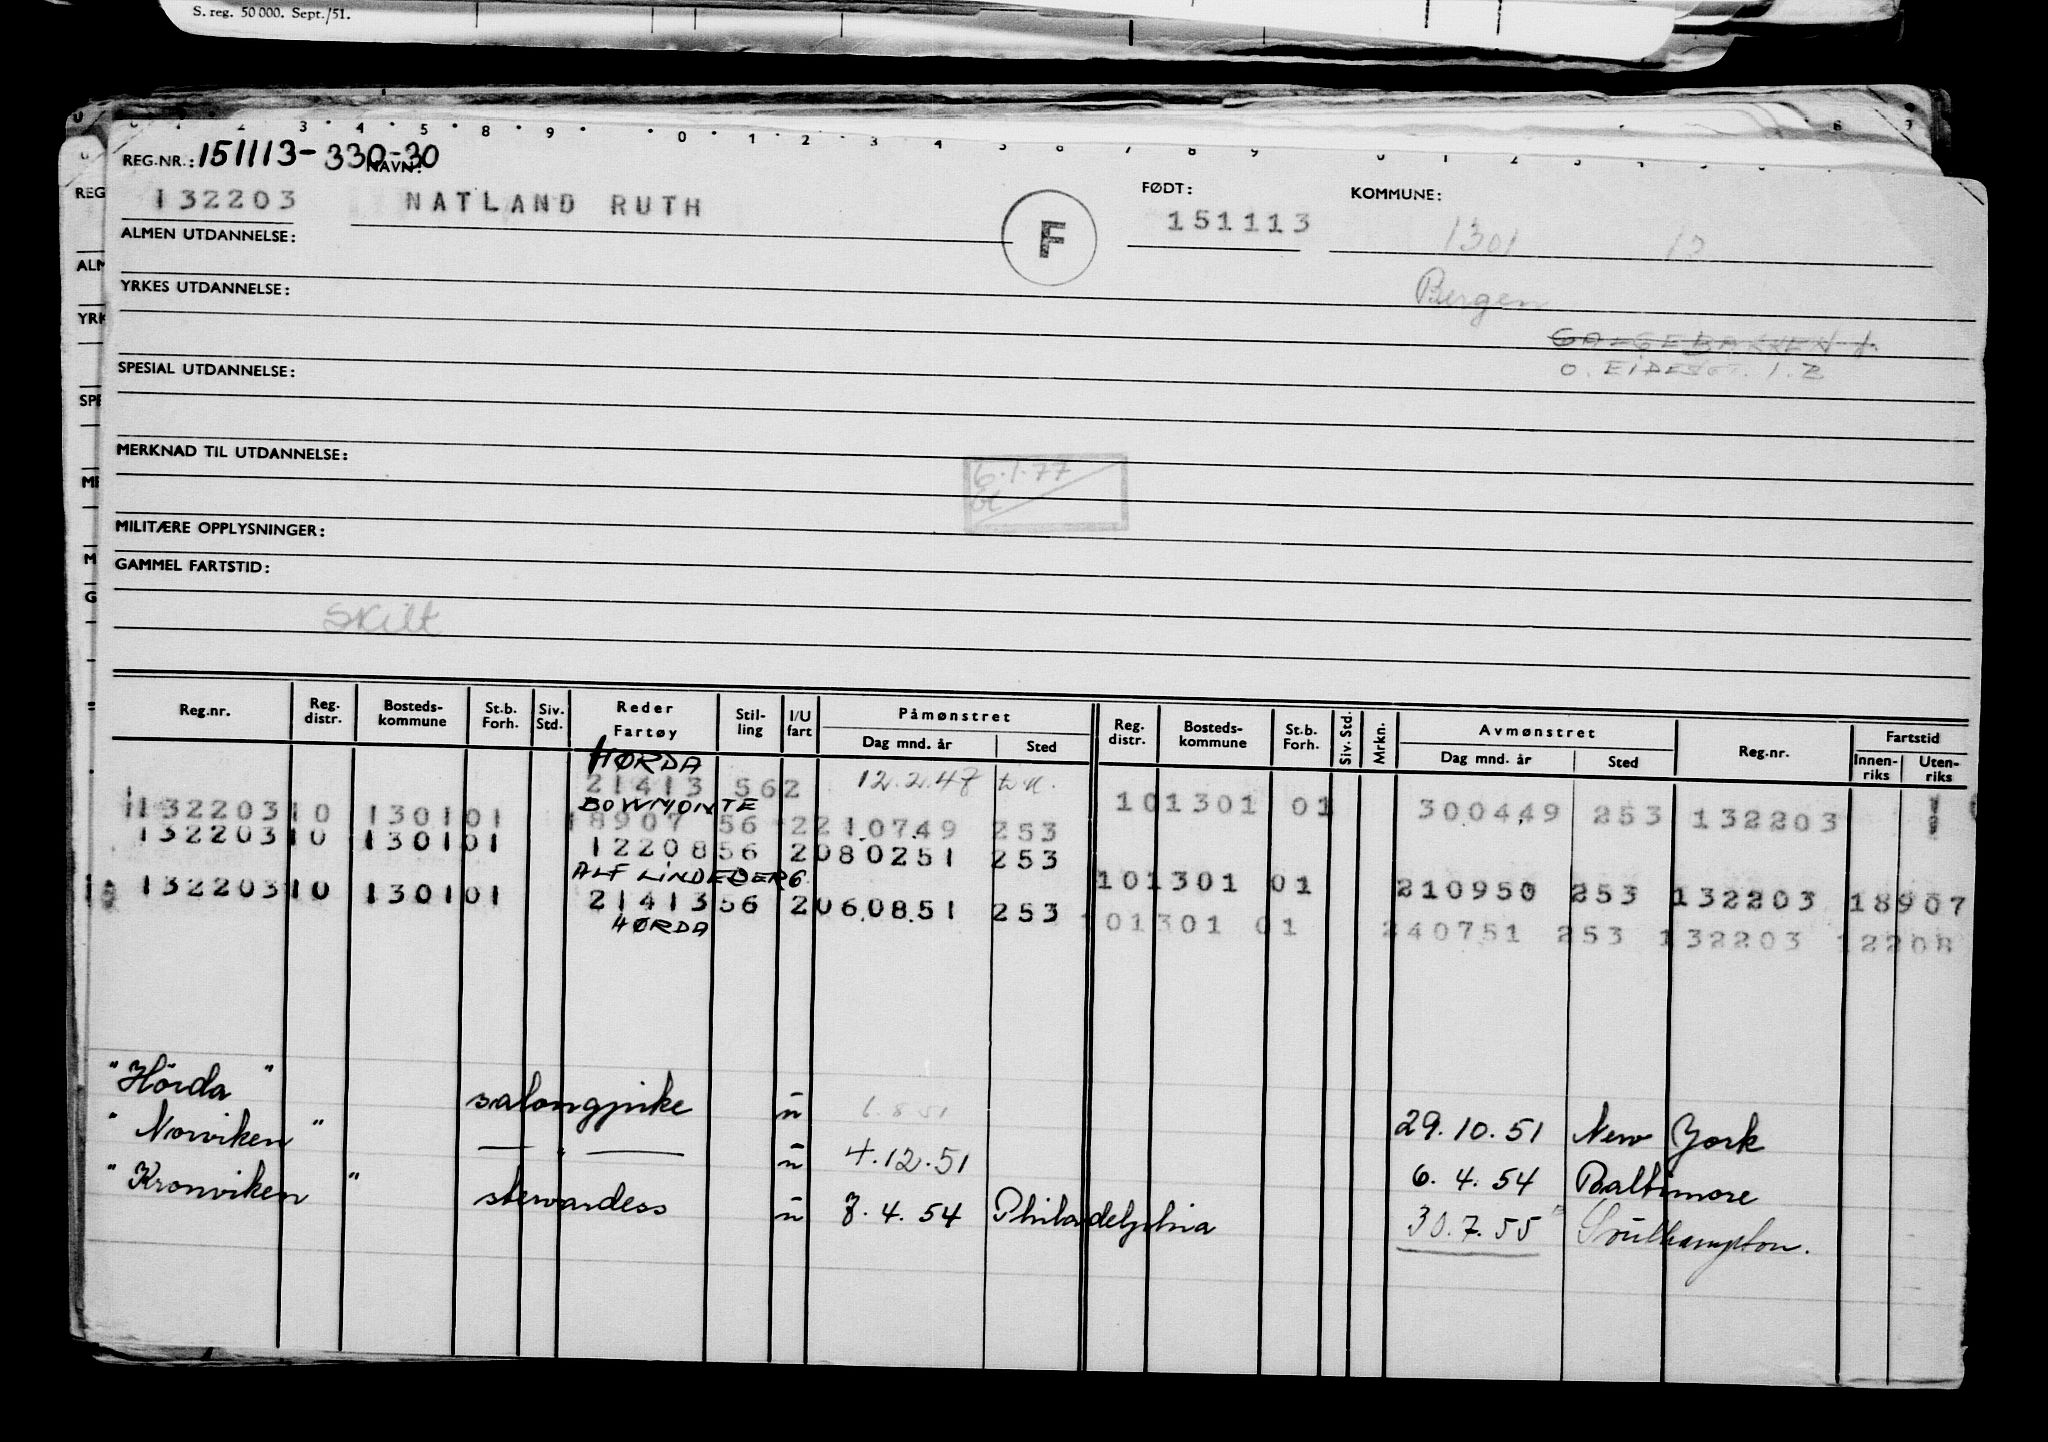 S. reg. 50 000. Sept./51.
REG.NR.: 151113-330-30 NAVN:
132203 NATLAND RUTH F FØDT: 151113 KOMMUNE: 1301
ALMEN UTDANNELSE:
Bergen
YRKES UTDANNELSE:
GALGEBAKKEN
SPESIAL UTDANNELSE:
MERKNAD TIL UTDANNELSE:
6.1.77
MILITÆRE OPPLYSNINGER:
GAMMEL FARTSTID:
Skilt
Reg.nr. Reg. distr. Bosteds-kommune St.b. Forh. Siv. Std. Reder Fartøy Stil-ling I/U fart Påmønstret Dag mnd. år Sted Reg. distr. Bosteds-kommune St.b. Forh. Siv. Std. Mrkn. Avmønstret Dag mnd. år Sted Reg.nr. Fartstid Innen-riks Uten-riks
HØRDA
21413 562 12.2.47
BOWMONTE 101301 01 300449 253 132203
132203 10 130101 18907 56 2 210749 253
132203 10 130101 12208 56 2 080251 253
ALF LINDEBERG 101301 01 210950 253 132203 18907
132203 10 130101 21413 56 2 060851 253
HØRDA 101301 01 240751 253 132203 12208
"Hörda" salongpike u 6.8.51 29.10.51 New York
"Norviken" — " — u 4.12.51 6.4.54 Baltimore
"Kronviken" stewardess u 7.4.54 Philadelphia 30.7.55 Southampton.